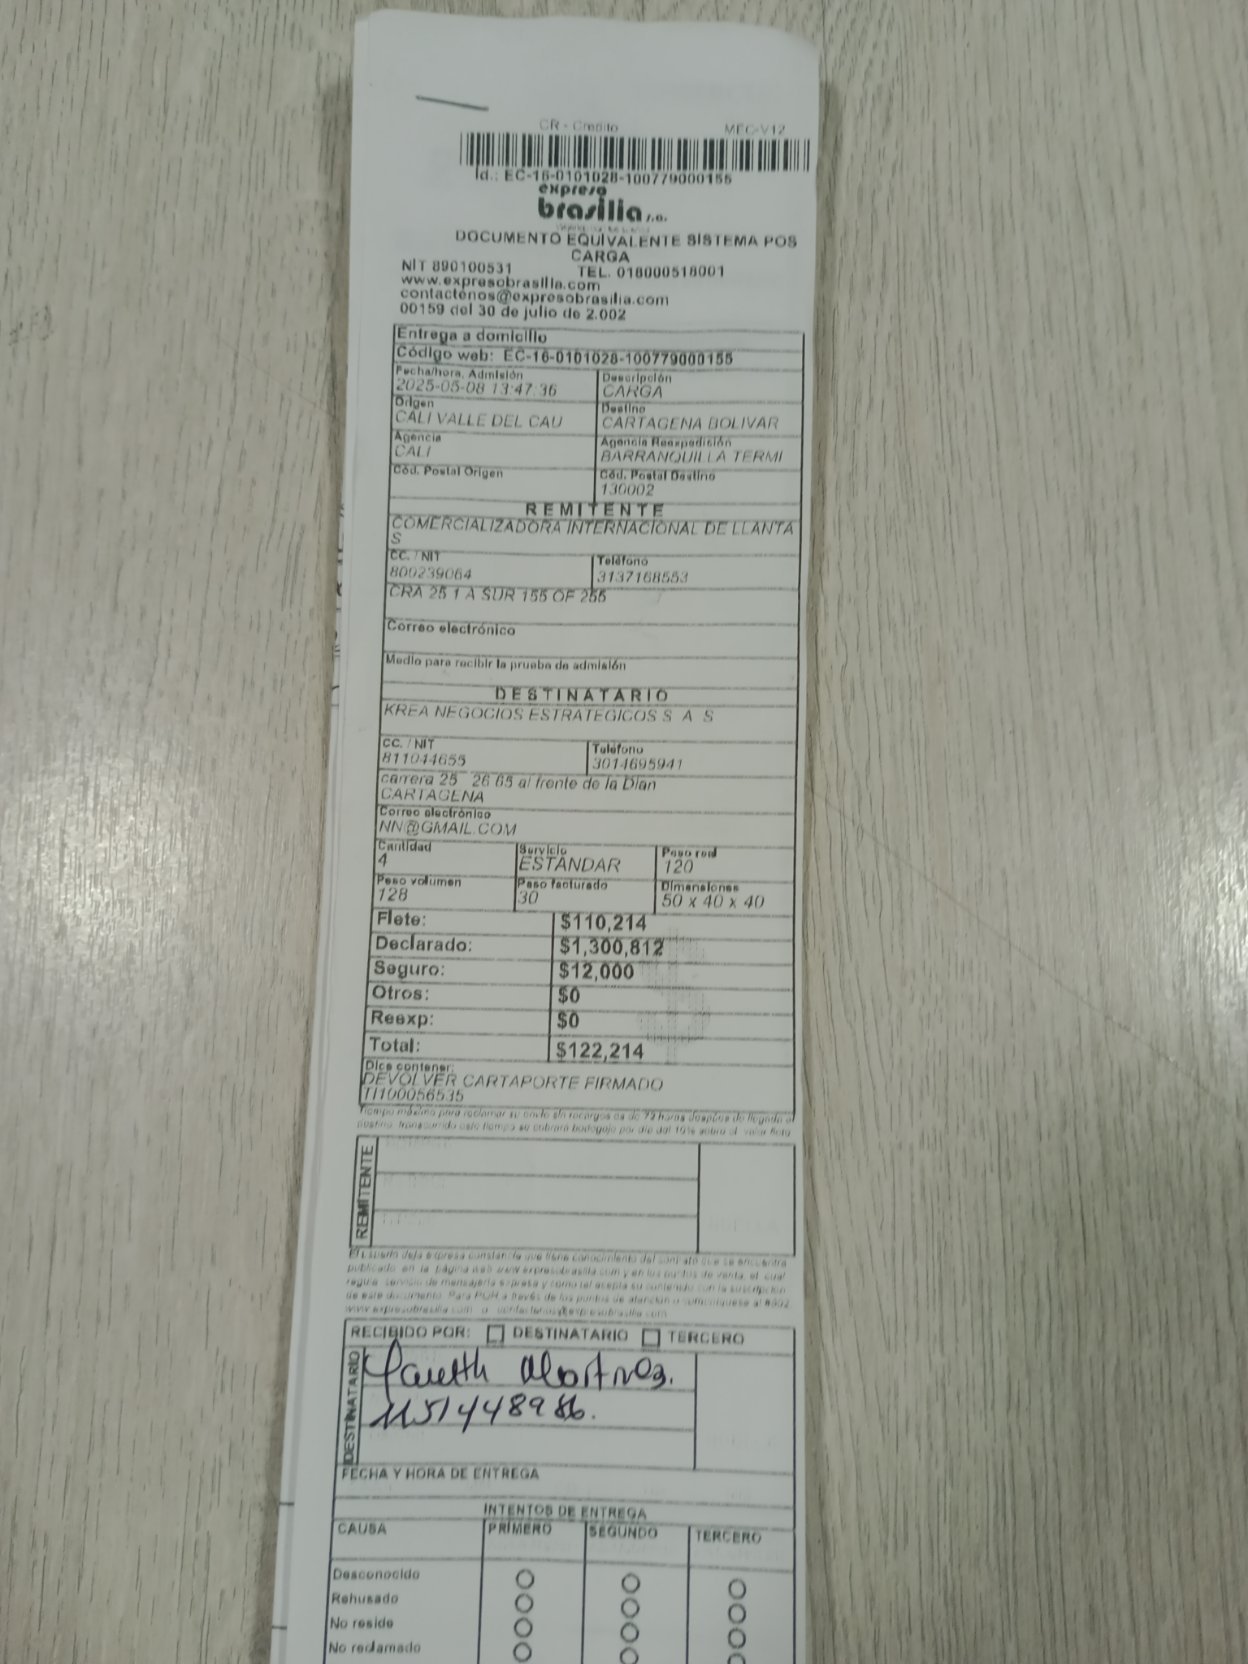 CR - Credito MEC-V12
Id.: EC-16-0101028-100779000155
expreso
brasilia s.a.
DOCUMENTO EQUIVALENTE SISTEMA POS
CARGA
NIT 890100531 TEL. 018000518001
www.expresobrasilia.com
contactenos@expresobrasilia.com
00159 del 30 de julio de 2.002
Entrega a domicilio
Código web: EC-16-0101028-100779000155
Fecha/hora. Admisión Descripción
2025-05-08 13:47:36 CARGA
Origen Destino
CALI VALLE DEL CAU CARTAGENA BOLIVAR
Agencia Agencia Reexpedición
CALI BARRANQUILLA TERMI
Cód. Postal Origen Cód. Postal Destino
130002
REMITENTE
COMERCIALIZADORA INTERNACIONAL DE LLANTA
S
CC. / NIT Teléfono
800239064 3137168553
CRA 25 1 A SUR 155 OF 255
Correo electrónico
Medio para recibir la prueba de admisión
DESTINATARIO
KREA NEGOCIOS ESTRATEGICOS S A S
CC. / NIT Teléfono
811044655 3014695941
carrera 25 26 65 al frente de la Dian
CARTAGENA
Correo electrónico
NN@GMAIL.COM
Cantidad Servicio Peso real
4 ESTANDAR 120
Peso volumen Peso facturado Dimensiones
128 30 50 x 40 x 40
Flete: $110,214
Declarado: $1,300,812
Seguro: $12,000
Otros: $0
Reexp: $0
Total: $122,214
Dice contener:
DEVOLVER CARTAPORTE FIRMADO
TI100056535
Tiempo máximo para reclamar su envío sin recargos es de 72 horas después de llegado al
destino, transcurrido este tiempo se cobrará bodegaje por día del 10% sobre el valor flete
REMITENTE
El usuario deja expresa constancia que tiene conocimiento del contrato que se encuentra
publicado en la página web www.expresobrasilia.com y en los puntos de venta, el cual
regula servicio de mensajería expresa y como tal acepta su contenido con la suscripción
de este documento. Para PQR a través de los puntos de atención o comuníquese al #502
www.expresobrasilia.com o contactenos@expresobrasilia.com
RECIBIDO POR: DESTINATARIO TERCERO
DESTINATARIO
Martnez.
FECHA Y HORA DE ENTREGA
INTENTOS DE ENTREGA
CAUSA PRIMERO SEGUNDO TERCERO
Desconocido
Rehusado
No reside
No reclamado